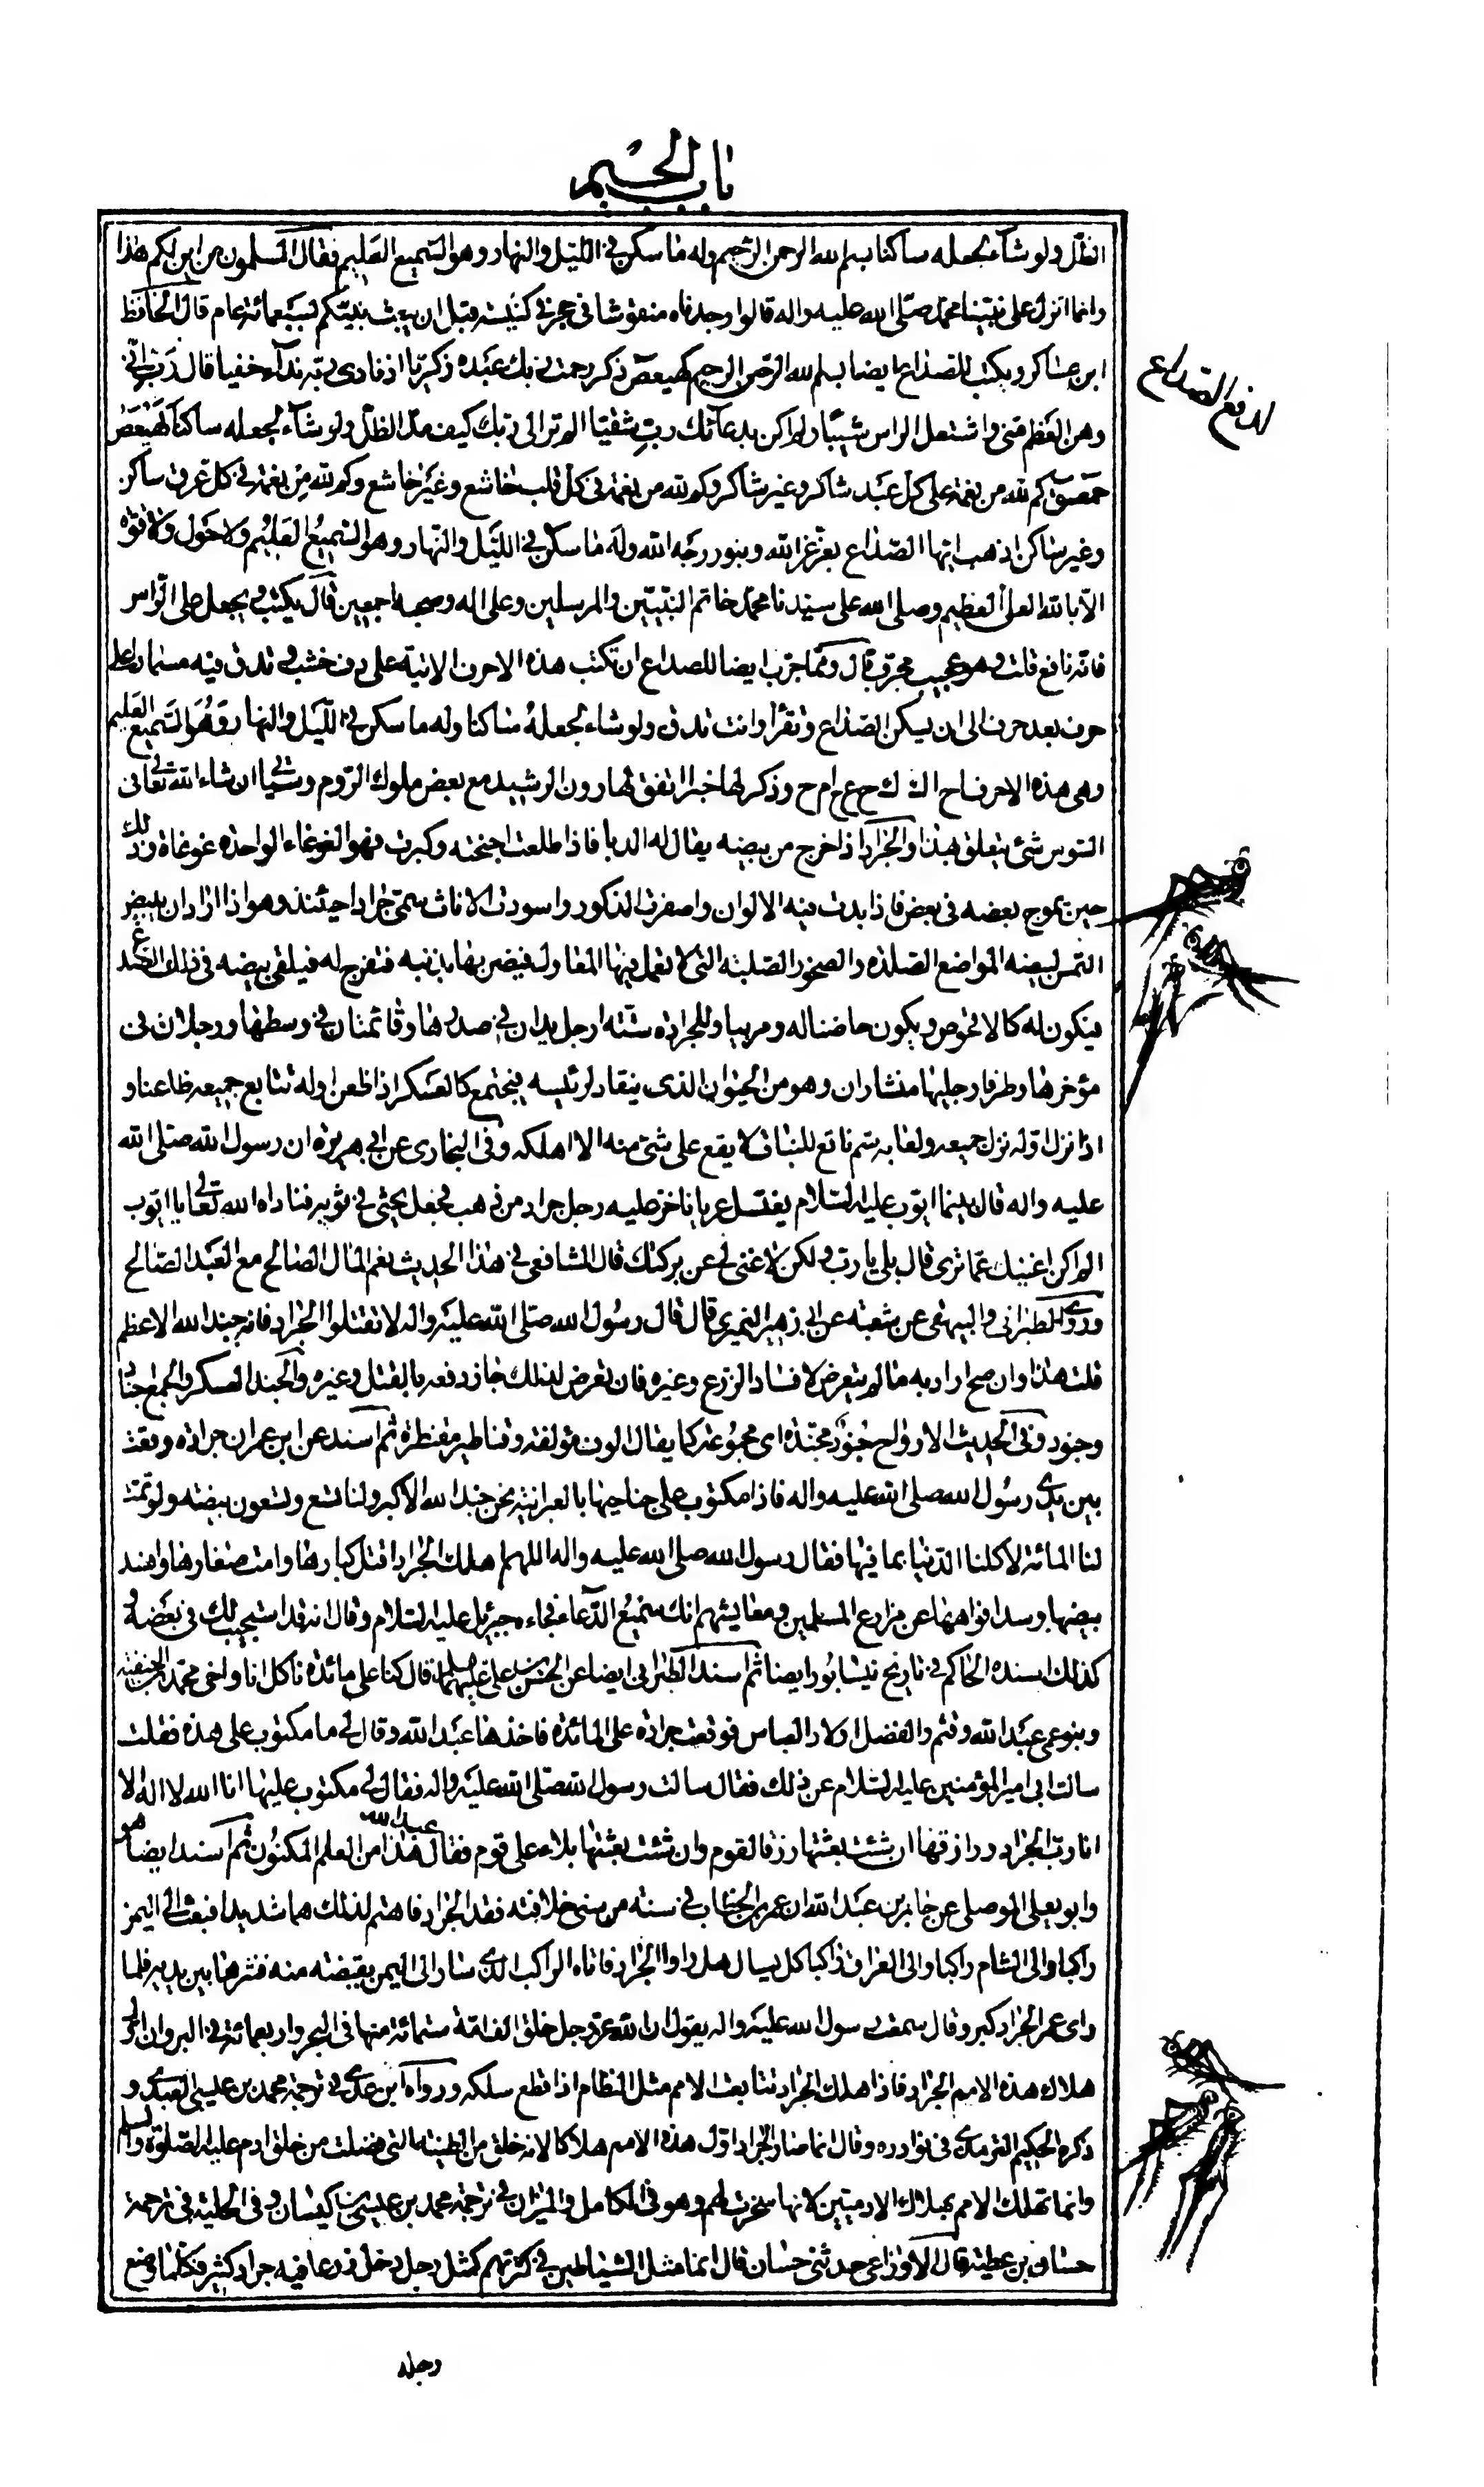 باب الجيم
الظل ولو شاء لجعله ساكنا بسم الله الرحمن الرحيم وله ما سكن في الليل والنهار وهو السميع العليم فقال المسلمون من اين لكم هذا
وانما انزل على نبينا محمد صلى الله عليه واله قالوا وجدناه منقوشا في حجر في كنيسة قبل ان يبعث نبيكم بسبعمائة عام قال الحافظ
لدفع الصداع
ابن عساكر ويكتب للصداع ايضا بسم الله الرحمن الرحيم كهيعص ذكر رحمت ربك عبده زكريا اذ نادى ربه نداء خفيا قال رب اني
وهن العظم مني واشتعل الراس شيبا ولم اكن بدعائك رب شقيا الم تر الى ربك كيف مد الظل ولو شاء لجعله ساكنا كهيعص
حمعسق كم لله من نعمة على كل عبد شاكر وغير شاكر وكم لله من نعمة في كل قلب خاشع وغير خاشع وكم لله من نعمة في كل عرق ساكن
وغير ساكن اذهب ايها الصداع بعز عز الله وبنور وجه الله وله ما سكن في الليل والنهار وهو السميع العليم ولا حول ولا قوة
الا بالله العلي العظيم وصلى الله على سيدنا محمد خاتم النبيين والمرسلين وعلى اله وصحبه اجمعين قال يكتب ويجعل على الراس
فانه نافع قلت وهو عجيب مجرب قال ومما جرب ايضا للصداع ان تكتب هذه الاحرف الاتية على دف خشب وتدق فيه مسمارا على
حرف بعد حرف الى ان يسكن الصداع وتقرأ وانت تدق ولو شاء لجعله ساكنا وله ما سكن في الليل والنهار وهو السميع العليم
وهي هذه الاحرف اح اك ك ح ع ا م ح وذكر لها خبرا اتفق لهارون الرشيد مع بعض ملوك الروم وسياتي ان شاء الله تعالى في
السوس شئ يتعلق بهذا والجراد اذا خرج من بيضه يقال له الدبا فاذا طلعت اجنحته وكبرت فهو الغوغاء الواحدة غوغاة وذلك
حين يموج بعضه في بعض فاذا بدت فيه الالوان واصفرت الذكور واسودت الاناث سمى جرادا حينئذ وهو اذا اراد ان يبيض
التمس لبيضه المواضع الصلدة والصخور الصلبة التي لا تعمل فيها المعاول فيضربها بذنبه فتفرج له فيلقي بيضه في ذلك الصدع
فيكون له كالافحوص ويكون حاضنا له ومربيا وللجرادة ستة ارجل يدان في صدرها وقائمتان في وسطها ورجلان في
مؤخرها وطرفا رجليها منشاران وهو من الحيوان الذي ينقاد لرئيسه فيجتمع كالعسكر اذا ظعن اوله تتابع جميعه ظاعنا و
اذا نزل اوله نزل جميعه ولعابه سم ناقع للنبات لا يقع على شئ منه الا اهلكه وفي البخاري عن ابي هريرة ان رسول الله صلى الله
عليه واله قال بينما ايوب عليه السلام يغتسل عريانا خر عليه رجل جراد من ذهب فجعل يحثي في ثوبه فناداه الله تعالى يا ايوب
الم اكن اغنيتك عما ترى قال بلى يا رب ولكن لا غنى لي عن بركتك قال الشافعي في هذا الحديث نعم المال الصالح مع العبد الصالح
وروى الطبراني والبيهقي عن شعبة عن ابي زهير النميري قال قال رسول الله صلى الله عليه واله لا تقتلوا الجراد فانه جند الله الاعظم
قلت هذا وان صح اراد به ما لم يتعرض لافساد الزرع وغيره فان تعرض لذلك جاز دفعه بالقتل وغيره والجند العسكر والجمع اجناد
وجنود وفي الحديث الارواح جنود مجندة اى مجموعة كما يقال الوف مؤلفة وقناطير مقنطرة ثم اسند عن ابن عمران جرادة وقعت
بين يدي رسول الله صلى الله عليه واله فاذا مكتوب على جناحيها بالعبرانية نحن جند الله الاكبر ولنا تسع وتسعون بيضة ولو تمت
لنا المائة لاكلنا الدنيا بما فيها فقال رسول الله صلى الله عليه واله اللهم اهلك الجراد اقتل كبارها وامت صغارها وافسد
بيضها وسد افواهها عن مزارع المسلمين ومعايشهم انك سميع الدعاء فجاءه جبرئيل عليه السلام وقال انه قد استجيب لك في بعضه و
كذلك اسنده الحاكم في تاريخ نيسابور ايضا ثم اسند الطبراني ايضا عن الحسن بن علي عليهما السلام قال كنا على مائدة ناكل انا واخي محمد بن الحنفية
وبنو عمي عبد الله وقثم والفضل اولاد العباس فوقعت جرادة على المائدة فاخذها عبد الله وقال لي ما مكتوب على هذه فقلت
سالت ابي امير المؤمنين عليه السلام عن ذلك فقال سالت رسول الله صلى الله عليه واله فقال لي مكتوب عليها انا الله لا اله الا
انا رب الجراد ورازقها ان شئت بعثتها رزقا لقوم وان شئت بعثتها بلاء على قوم فقال عبد الله هذا من العلم المكنون ثم اسند ايضا هو
وابو يعلى الموصلي عن جابر بن عبد الله ان عمر بن الخطاب في سنة من سني خلافته فقد الجراد فاهتم لذلك هما شديدا فبعث الى اليمن
راكبا والى الشام راكبا والى العراق راكبا كل يسال هل راوا الجراد فاتاه الراكب الذي سار الى اليمن بقبضة منه فنثرها بين يديه فلما
راى عمر الجراد كبر وقال سمعت رسول الله عليه واله يقول ان الله عز وجل خلق الف امة ستمائة منها في البحر واربعمائة في البر وان اول
هلاك هذه الامم الجراد فاذا هلك الجراد تتابعت الامم مثل النظام اذا قطع سلكه ورواه ابن عدي في ترجمة محمد بن عيسى العبدي و
ذكره الحكيم الترمذي في نوادره وقال انما صار الجراد اول هذه الامم هلاكا لانه خلق من الطينة التي فضلت من خلق ادم عليه الصلوة والسلم
وانما تهلك الامم بهلاك الادميين لانها سخرت لهم وهو في الكامل والميزان في ترجمة محمد بن عيسى بن كيسان وفي الحلية في ترجمة
حسان بن عطية قال الاوزاعي حدثني حسان قال انما مثل الشياطين في كثرتهم كمثل رجل دخل زرعا فيه جراد كثير فكلما وضع
رجله